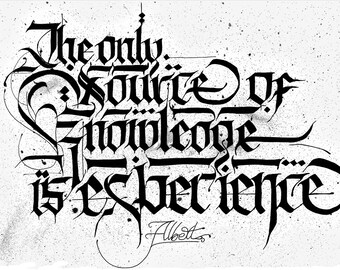 The only
source of
knowledge
is experience
Albert